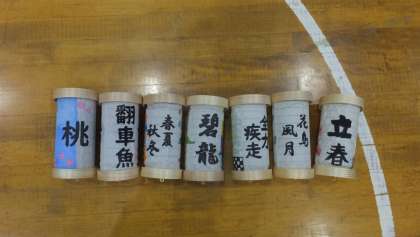 桃
翻車魚
春夏
秋冬
碧龍
疾走
花鳥
風月
立春